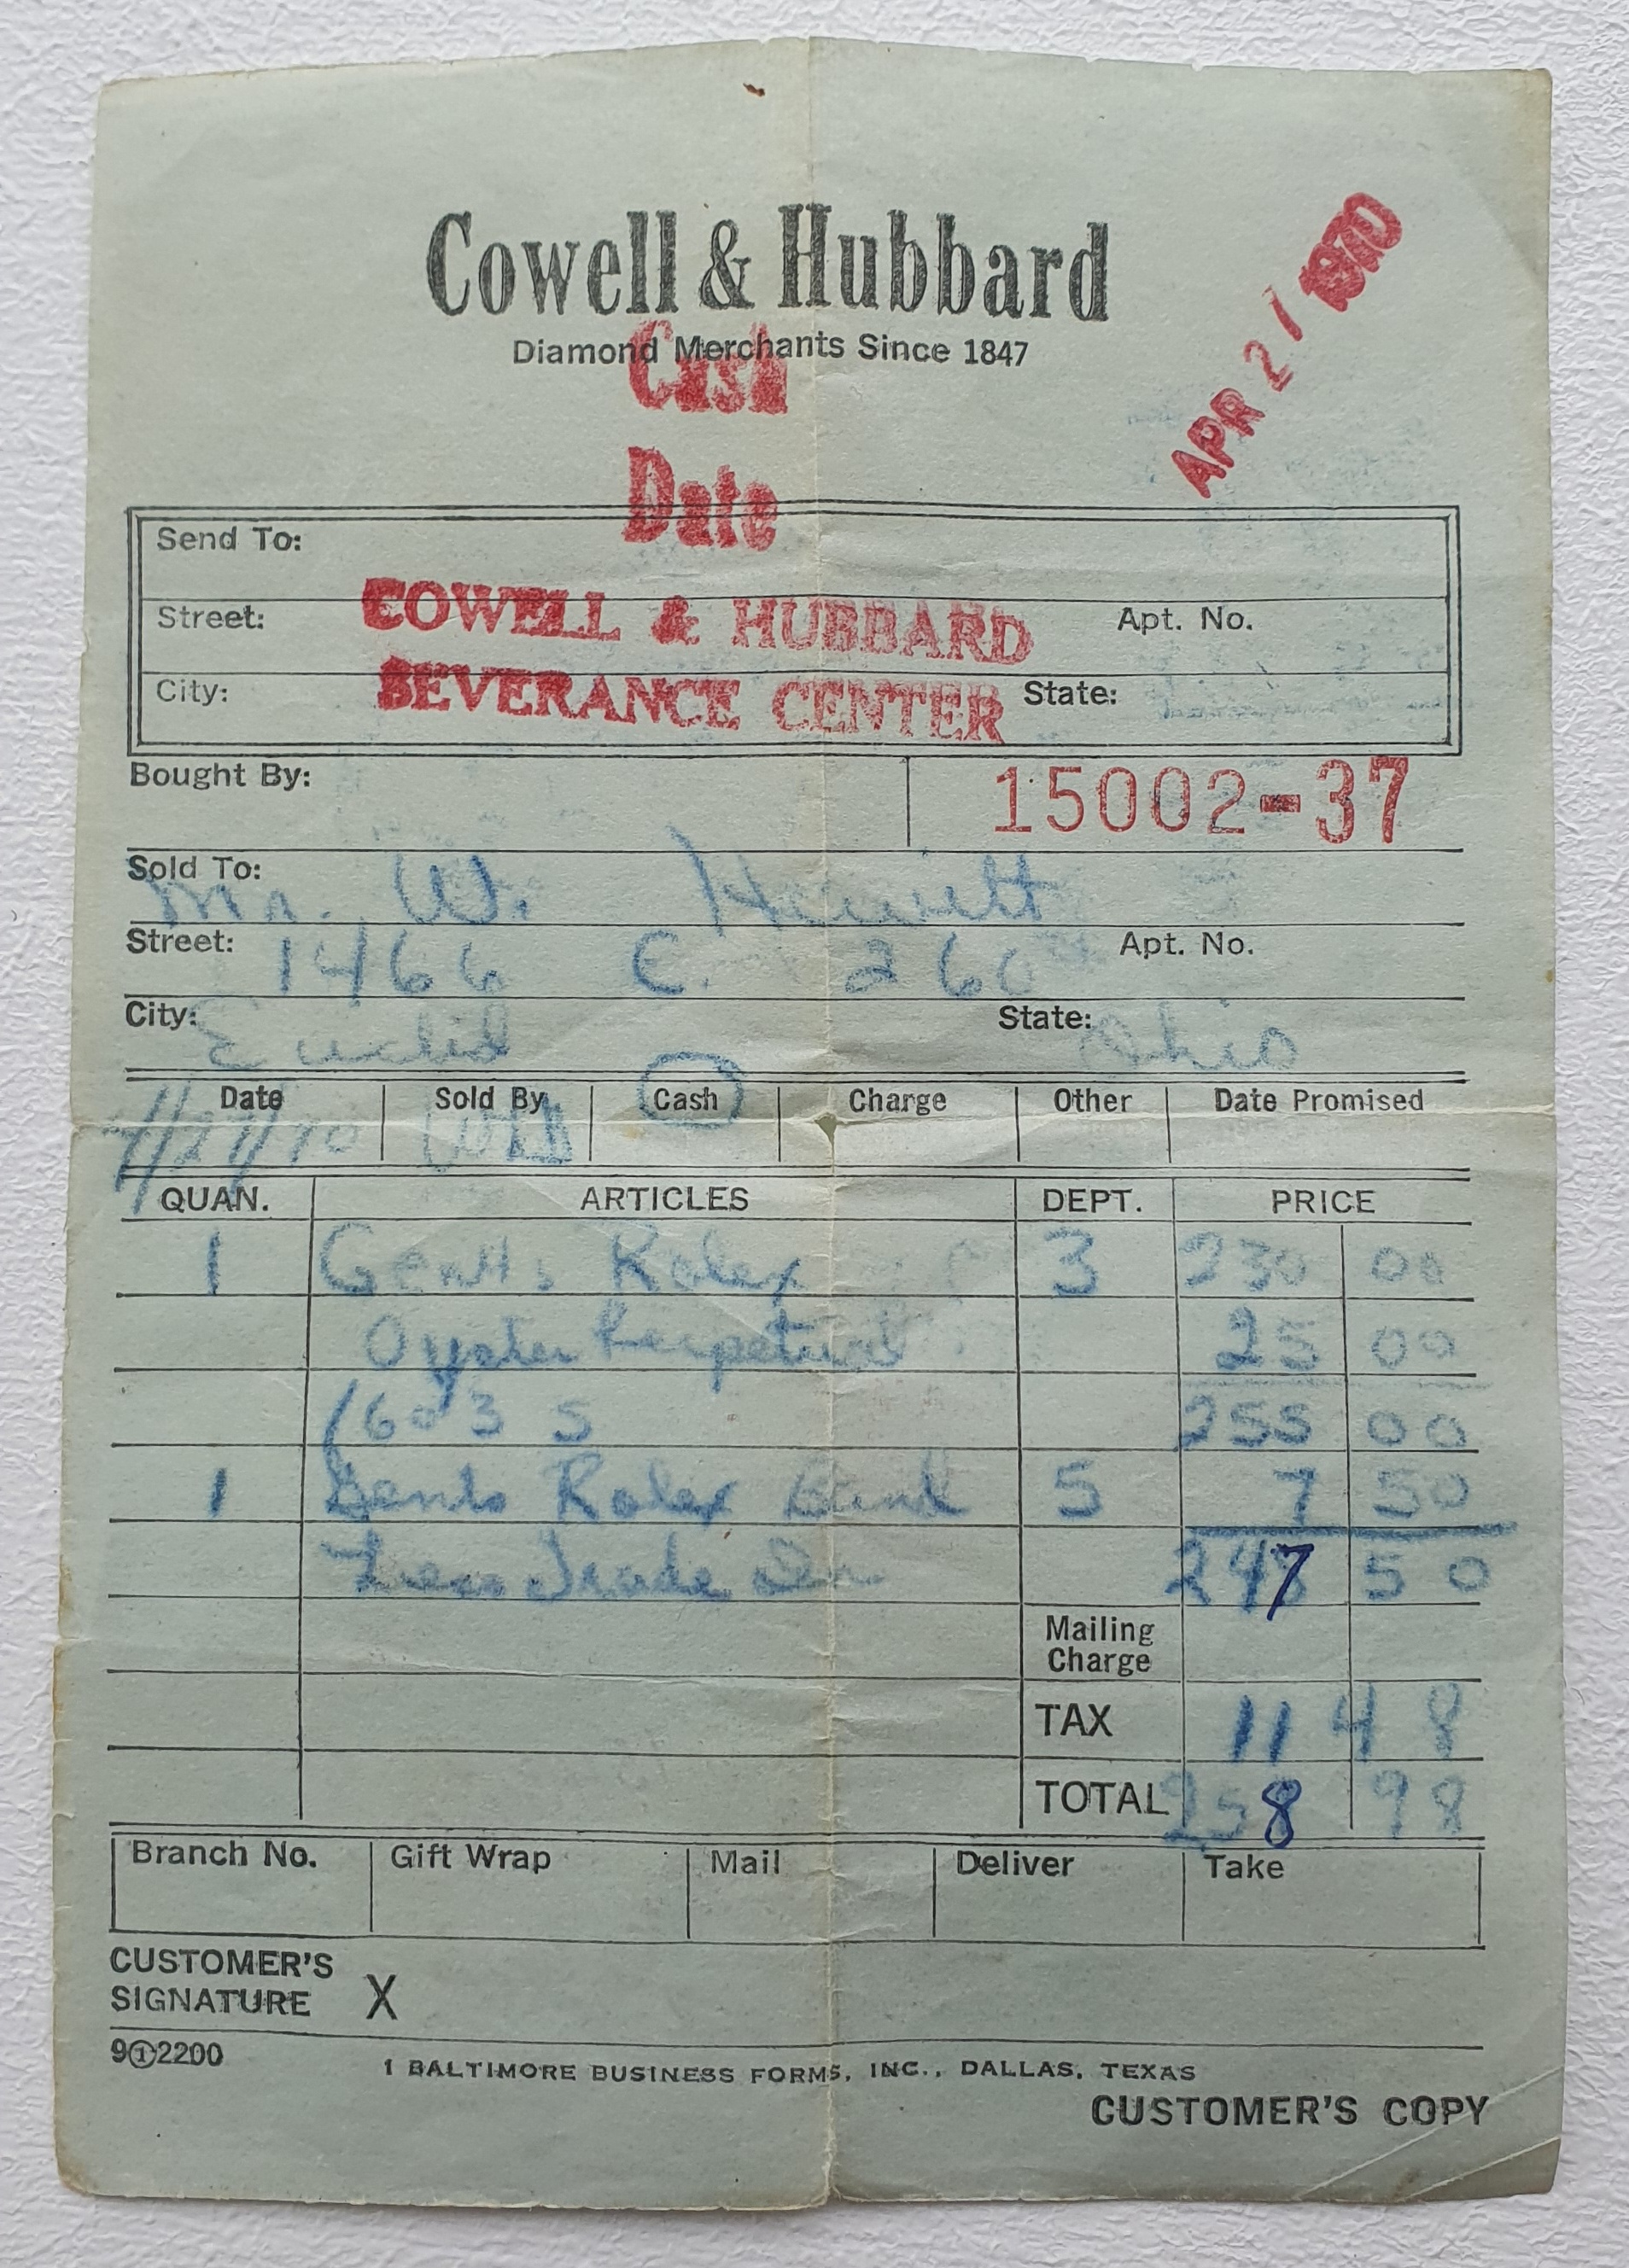 Cowell & Hubbard
Diamond Merchants Since 1847
APR 21 1970
Cash
Date
Send To:
Street: Apt. No.
City: State:
COWELL & HUBBARD
BEVERANCE CENTER
Bought By: 15002-37
Sold To: Mr. W. Hewitt
Street: 1466 E. 260 Apt. No.
City: Euclid State: Ohio
Date Sold By Cash Charge Other Date Promised
4/21/70
QUAN. ARTICLES DEPT. PRICE
1 Gents Rolex 3 230 00
Oyster Perpetual 25 00
1603 5 255 00
1 Gents Rolex Band 5 7 50
Less Trade In 247 50
Mailing
Charge
TAX 11 48
TOTAL 258 98
Branch No. Gift Wrap Mail Deliver Take
CUSTOMER'S
SIGNATURE X
9①2200
1 BALTIMORE BUSINESS FORMS, INC., DALLAS, TEXAS
CUSTOMER'S COPY